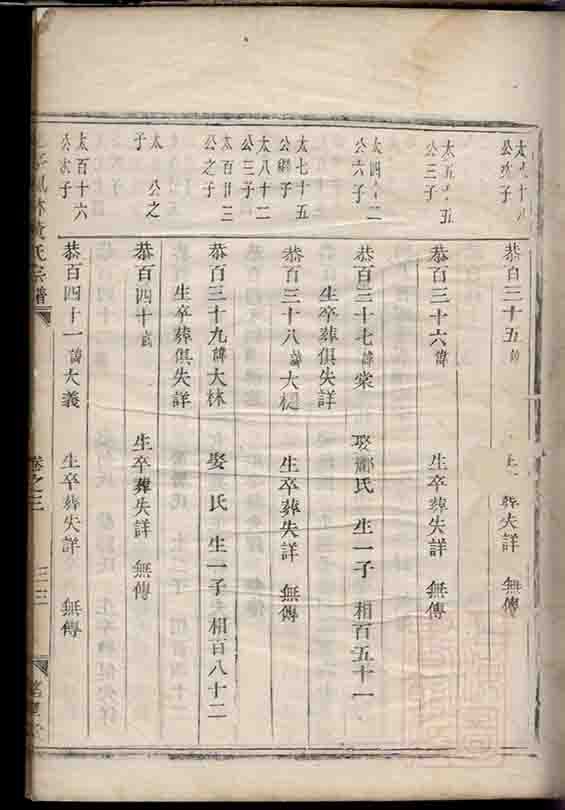 公次子
恭百三十五
葬失詳 無傳
公三子
恭百三十六諱
生卒葬失詳 無傳
公六子
恭百三十七諱棠
娶鄭氏 生一子 相百五十一
生卒葬俱失詳
太七十五
公嗣子
恭百三十八諱大
生卒葬失詳 無傳
太八十二
公三子
太百廿三
公之子
恭百三十九諱大林
娶 氏 生一子 相百八十二
生卒葬俱失詳
太 公之
子
恭百四十諱
生卒葬失詳 無傳
太百十六
公次子
恭百四十一諱大義
生卒葬失詳 無傳
林黃氏宗譜
卷之三
三三